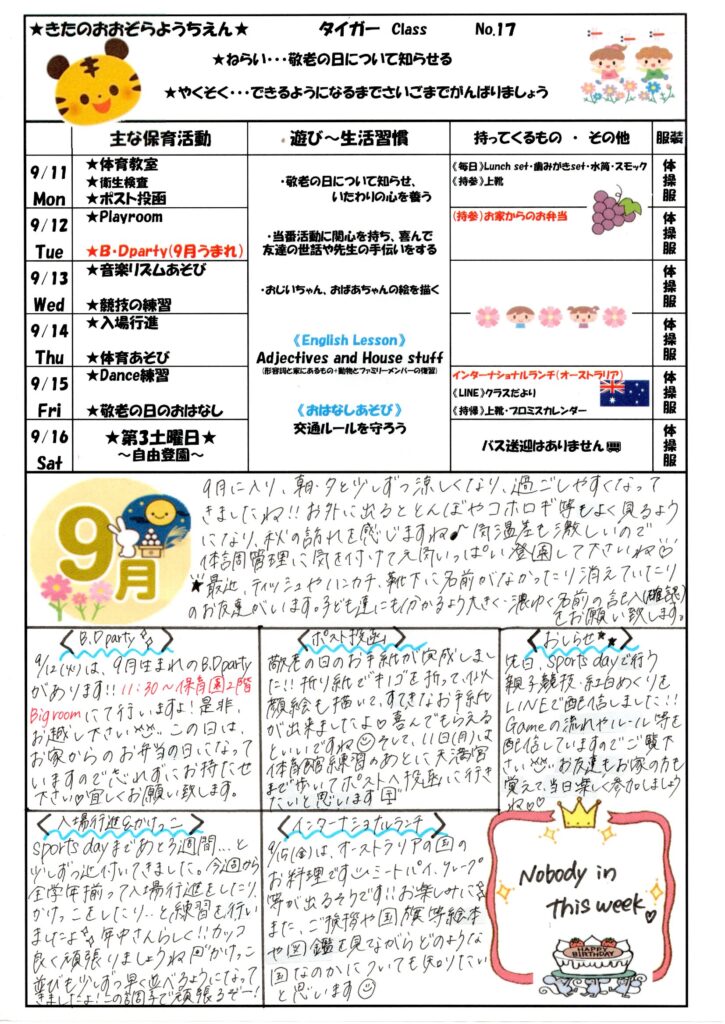 ★きたのおおぞらようちえん★ タイガー Class No.17
★ねらい・・・敬老の日について知らせる
★やくそく・・・できるようになるまでさいごまでがんばりましょう
主な保育活動 遊び～生活習慣 持ってくるもの ・ その他 服装
9/11 Mon
★体育教室
★衛生検査
★ポスト投函
9/12 Tue
★Playroom
★B・Dparty(9月うまれ)
9/13 Wed
★音楽リズムあそび
★競技の練習
9/14 Thu
★入場行進
★体育あそび
9/15 Fri
★Dance練習
★敬老の日のおはなし
9/16 Sat
★第3土曜日★
～自由登園～
・敬老の日について知らせ、
いたわりの心を養う
・当番活動に関心を持ち、喜んで
友達の世話や先生の手伝いをする
・おじいちゃん、おばあちゃんの絵を描く
《English Lesson》
Adjectives and House stuff
(形容詞と家にあるもの・動物とファミリーメンバーの復習)
《おはなしあそび》
交通ルールを守ろう
《毎日》Lunch set・歯みがきset・水筒・スモック
《持参》上靴
(持参)お家からのお弁当
インターナショナルランチ(オーストラリア)
《LINE》クラスだより
《持帰》上靴・プロミスカレンダー
バス送迎はありません
体操服
体操服
体操服
体操服
体操服
体操服
9月
9月に入り、朝・夕と少しずつ涼しくなり、過ごしやすくなって
きましたね!!お外に出るととんぼやコホロギ等もよく見るよう
になり、秋の訪れを感じますね♪気温差も激しいので
体調管理に気を付けて元気いっぱい登園して下さいね♡
★最近ティッシュやハンカチ、靴下に名前がなかったり消えていたり
のお友達がいます。子ども達にも分かるよう大きく、濃ゆく名前の記入(確認)
をお願い致します。
〈B.Dparty〉
9/12(火)は、9月生まれのB.Dparty
があります!!11:30～保育園2階
Bigroomにて行いますよ!是非、
お越し下さい この日は、
お家からのお弁当の日になって
いますので忘れずにお持たせ
下さい♡宜しくお願い致します。
〈ポスト投函〉
敬老の日のお手紙が完成しまし
た!!折り紙でキゴを折って、似
顔絵も描いて、すてきなお手紙
が出来ましたよ♡喜んでもらえる
といいですね☺そして、11日(月)は
体育館練習のあとに天満宮
まで歩いてポストへ投函に行き
たいと思います
〈おしらせ★★〉
先日、sports dayで行う
親子競技、紅白めくりを
LINEで配信しました!!
Gameの流れやルール等を
配信していますのでご覧下
さい お友達もお家の方も
覚えて、当日楽しく参加しましょう
ね♡♡
〈入場行進&かけっこ〉
sports dayまであと3週間...と
少しずつ近付いてきました。今週から
全学年揃って入場行進をしたり、
かけっこをしたり..と練習を行い
ましたよ 年中さんらしく!!カッコ
良く頑張りましょうね かけっこ
並びも少しずつ早く並べるようになって
きましたよ!この調子で頑張るぞー!
〈インターナショナルランチ〉
9/15(金)は、オーストラリアの国の
お料理です ミートパイ、クレープ
等が出るそうです!!お楽しみに
また、ご挨拶や国旗等絵本
や図鑑を見ながらどのような
国なのかについても知りたい
と思います☺
Nobody in
this week♡
HAPPY
BIRTHDAY